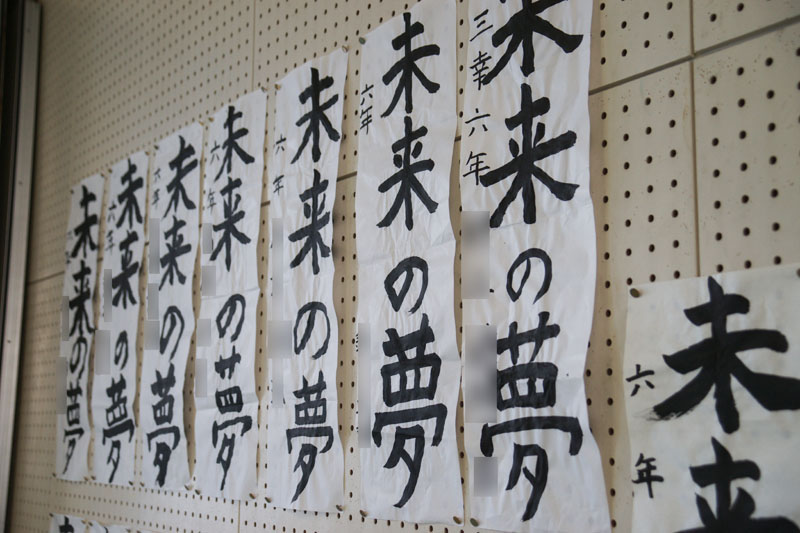 未来
六年
未来の夢
三幸 六年
未来の夢
六年
未来の夢
六年
未来の夢
六年
未来の夢
六年
未来の夢
六年
未来の夢